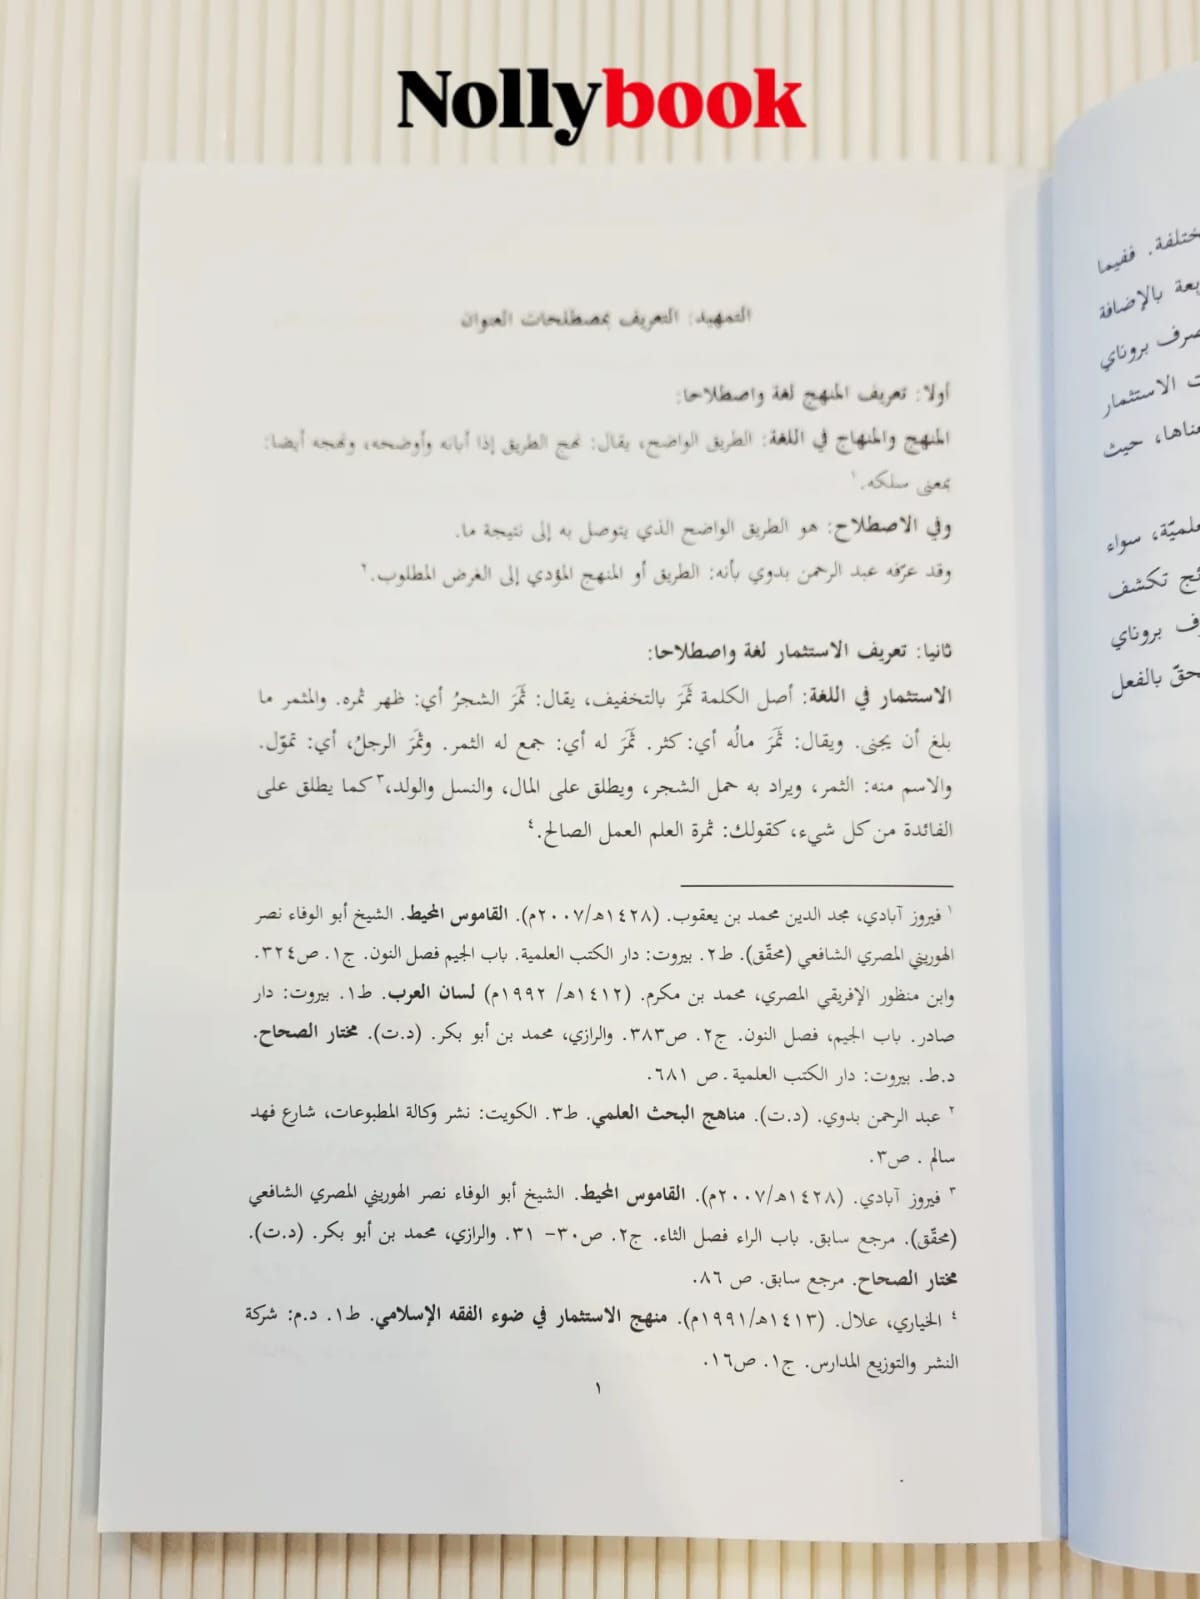 Nollybook
التمهيد: التعريف بمصطلحات العنوان
أولا: تعريف المنهج لغة واصطلاحا:
المنهج والمنهاج في اللغة: الطريق الواضح، يقال: نهج الطريق إذا أبانه وأوضحه، ونهجه أيضا:
بمعنى سلكه.١
وفي الاصطلاح: هو الطريق الواضح الذي يتوصل به إلى نتيجة ما.
وقد عرّفه عبد الرحمن بدوي بأنه: الطريق أو المنهج المؤدي إلى الغرض المطلوب.٢
ثانيا: تعريف الاستثمار لغة واصطلاحا:
الاستثمار في اللغة: أصل الكلمة ثَمَرَ بالتخفيف، يقال: ثَمَرَ الشجرُ أي: ظهر ثمره. والمثمر ما
بلغ أن يجنى. ويقال: ثَمَرَ مالُه أي: كثر. ثَمَرَ له أي: جمع له الثمر. وثمَرَ الرجلُ، أي: تموّل.
والاسم منه: الثمر، ويراد به حمل الشجر، ويطلق على المال، والنسل والولد،٣ كما يطلق على
الفائدة من كل شيء، كقولك: ثمرة العلم العمل الصالح.٤
١ فيروز آبادي، مجد الدين محمد بن يعقوب. (١٤٢٨هـ/٢٠٠٧م). القاموس المحيط. الشيخ أبو الوفاء نصر
الهوريني المصري الشافعي (محقّق). ط٢. بيروت: دار الكتب العلمية. باب الجيم فصل النون. ج١. ص٣٢٤.
وابن منظور الإفريقي المصري، محمد بن مكرم. (١٤١٢هـ/ ١٩٩٢م) لسان العرب. ط١. بيروت: دار
صادر. باب الجيم، فصل النون. ج٢. ص٣٨٣. والرازي، محمد بن أبو بكر. (د.ت). مختار الصحاح.
د.ط. بيروت: دار الكتب العلمية. ص ٦٨١.
٢ عبد الرحمن بدوي. (د.ت). مناهج البحث العلمي. ط٣. الكويت: نشر وكالة المطبوعات، شارع فهد
سالم . ص٣.
٣ فيروز آبادي. (١٤٢٨هـ/٢٠٠٧م). القاموس المحيط. الشيخ أبو الوفاء نصر الهوريني المصري الشافعي
(محقّق). مرجع سابق. باب الراء فصل الثاء. ج٢. ص٣٠- ٣١. والرازي، محمد بن أبو بكر. (د.ت).
مختار الصحاح. مرجع سابق. ص ٨٦.
٤ الخياري، علال. (١٤١٣هـ/١٩٩١م). منهج الاستثمار في ضوء الفقه الإسلامي. ط١. د.م: شركة
النشر والتوزيع المدارس. ج١. ص١٦.
١
ففيما
بالإضافة
بروناي
الاستثمار
حيث
سواء
تكشف
بروناي
بالفعل